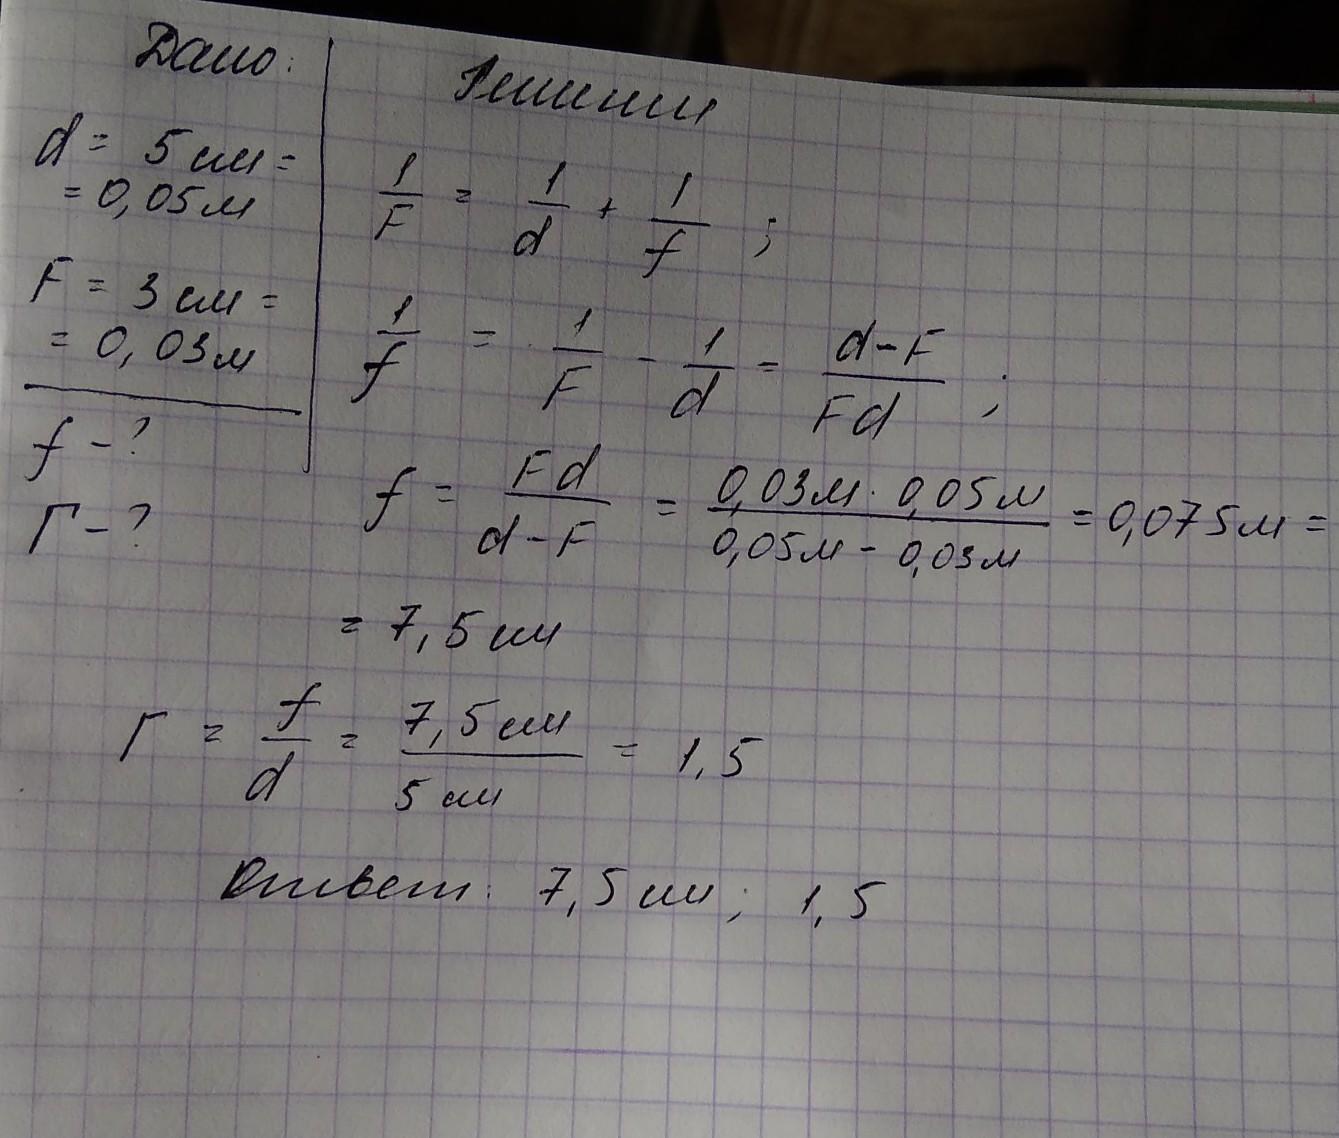 Дано:
d = 5 см =
= 0,05 м
F = 3 см =
= 0,03 м
f - ?
Г - ?
Решение
1/F = 1/d + 1/f ;
1/f = 1/F - 1/d = d-F/Fd ;
f = Fd/d-F = 0,03м · 0,05м/0,05м - 0,03м = 0,075м =
= 7,5 см
Г = f/d = 7,5 см/5 см = 1,5
Ответ: 7,5 см; 1,5